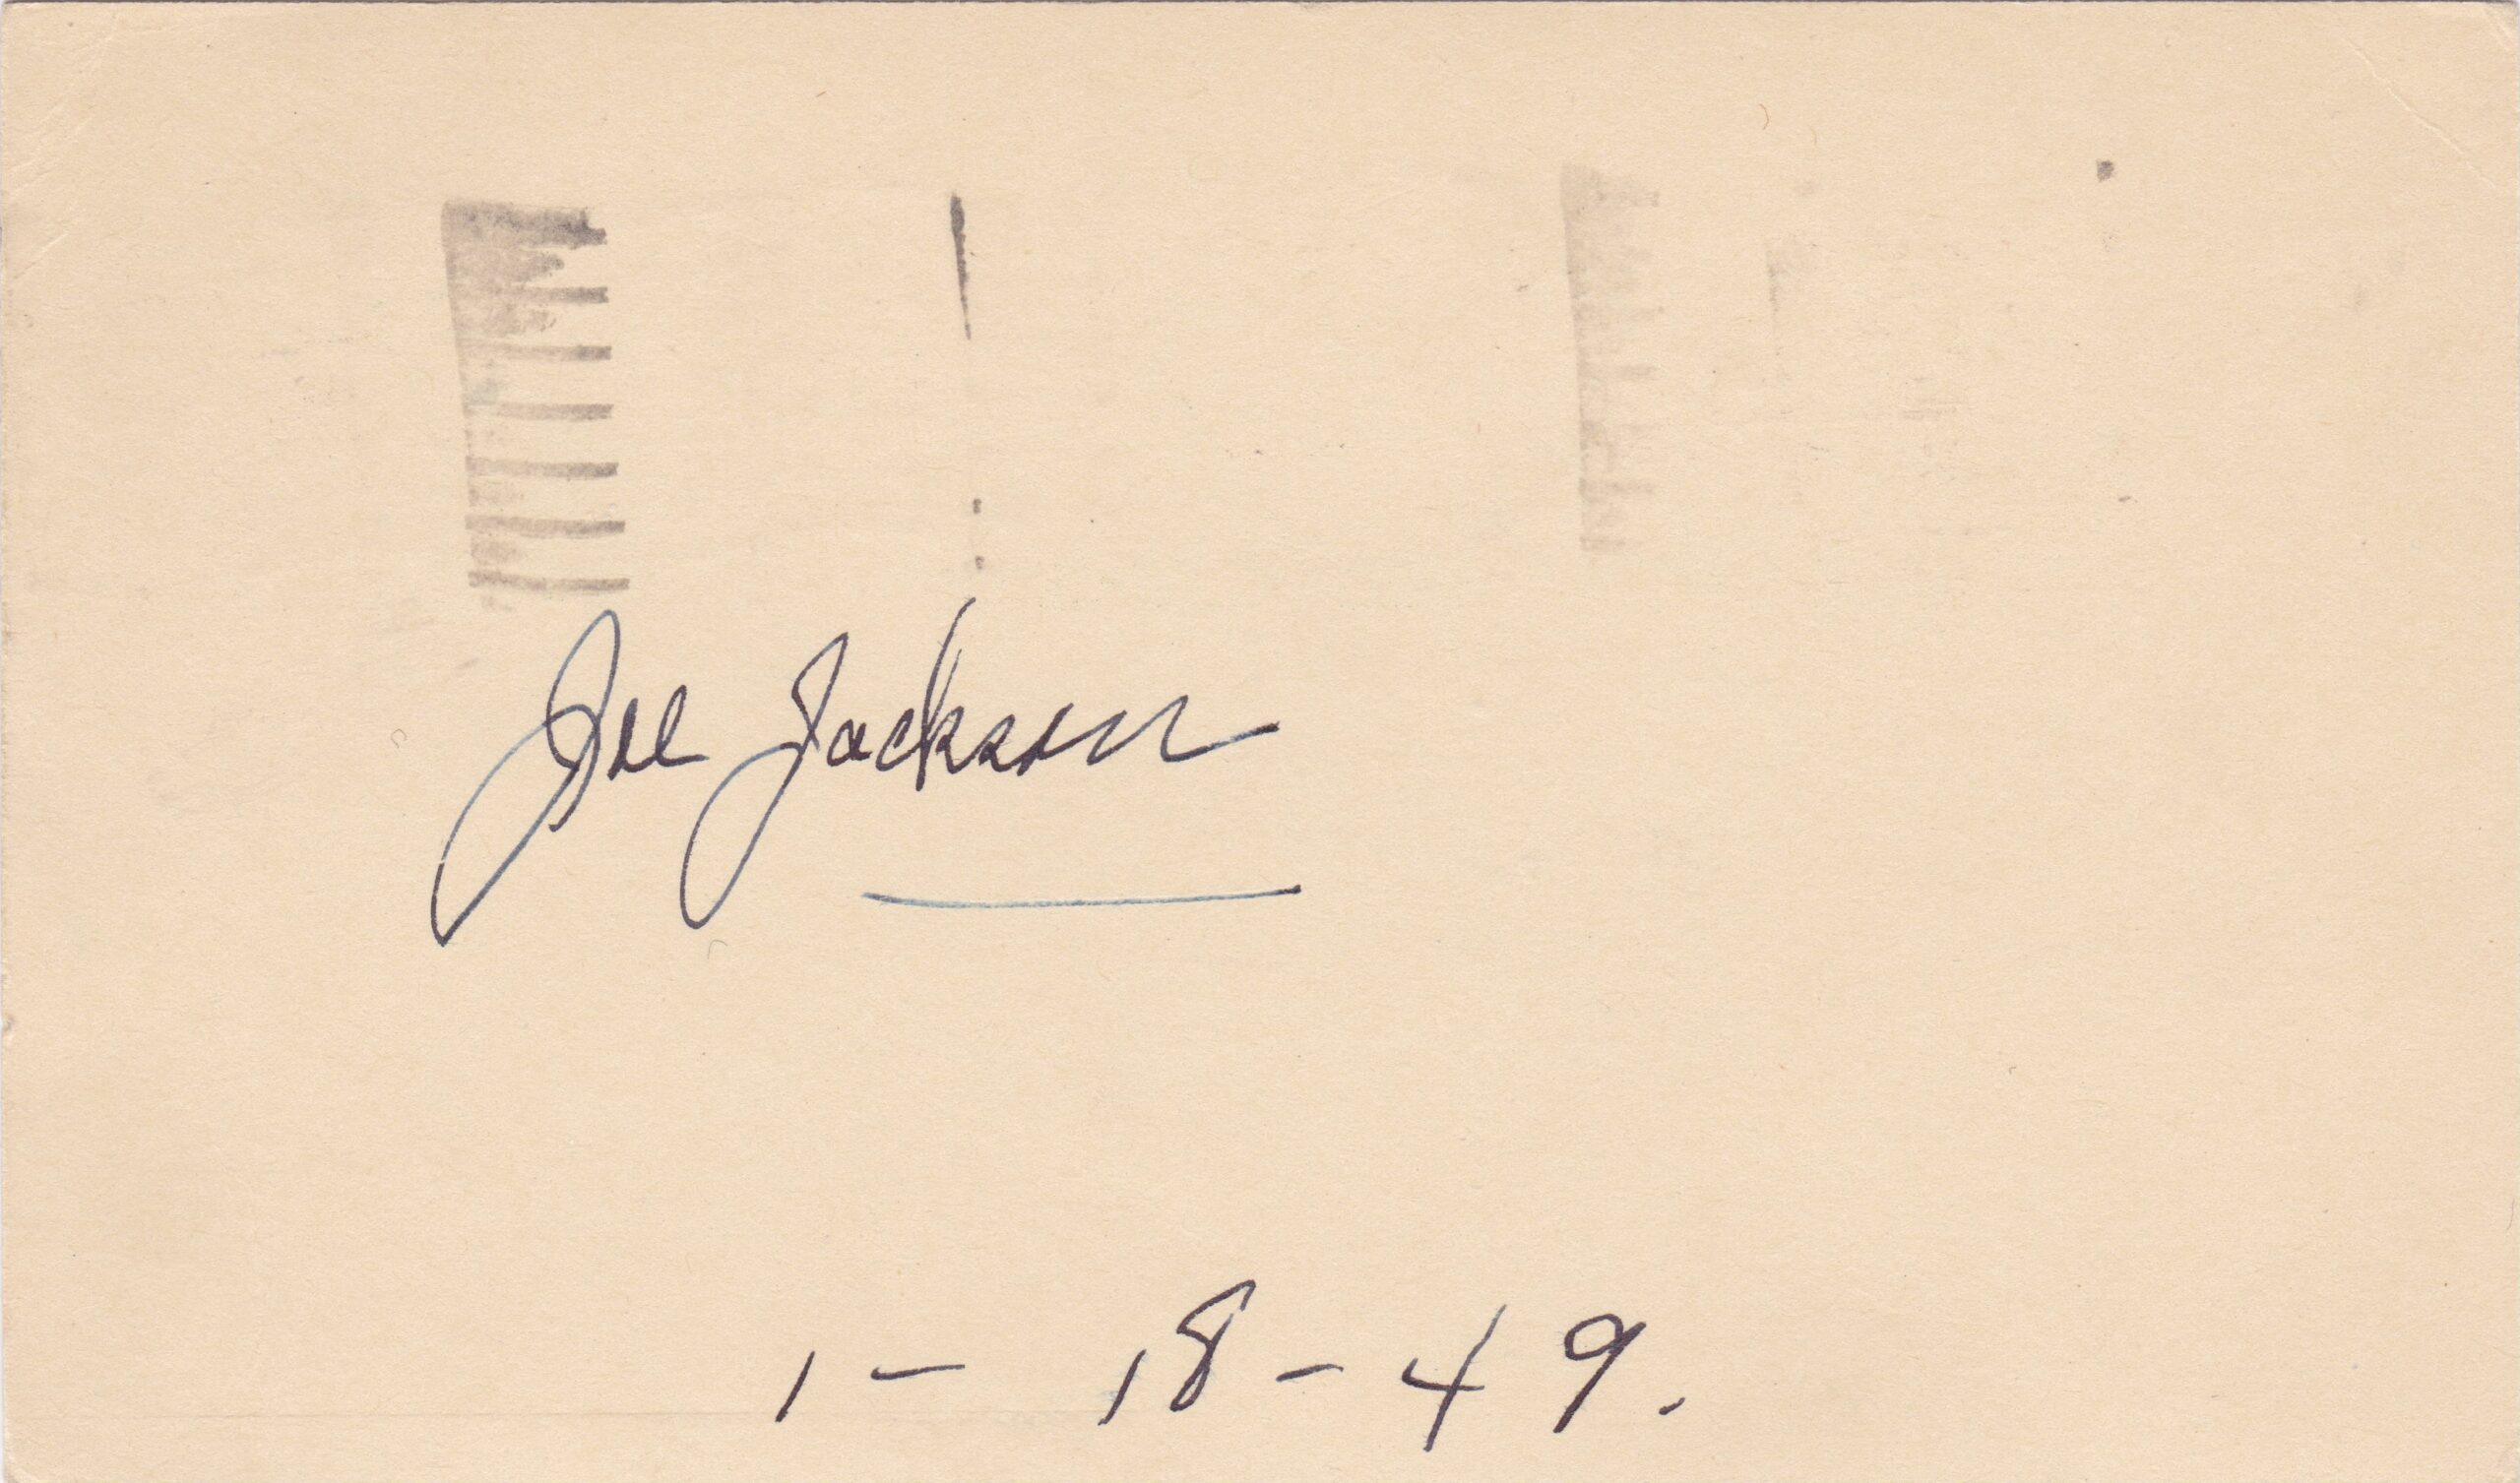 Joe Jackson
1 - 18 - 49.